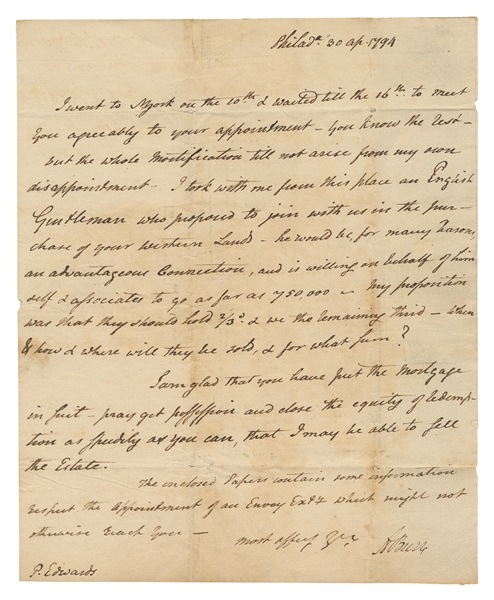 Philada. 30 ap. 1794
I went to NYork on the 10th & waited till the 16th to meet
You agreeably to your appointment – You know the rest –
but the whole Mortification did not arise from my own
disappointment – I took with me from this place an English
Gentleman who proposed to join with us in the pur-
chase of your Western Lands – he would be, for many reasons,
an advantageous Connection, and is willing in behalf of him
self & associates to go as far as 750,000 – My proposition
was that they should hold 2/3ds & we the remaining third – When
& how & where will they be sold, & for what Sum?
I am glad that you have put the Mortgage
in suit – pray get possession and close the equity of redemp-
tion as speedily as you can, that I may be able to sell
the Estate.
The enclosed Papers contain some information
respect the Appointment of an Envoy Exty which might not
otherwise reach You –
most affecy Yrs
ABurr
P. Edwards